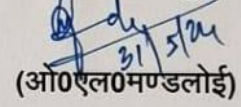 31/5/24
(ओ0एल0मण्डलोई)